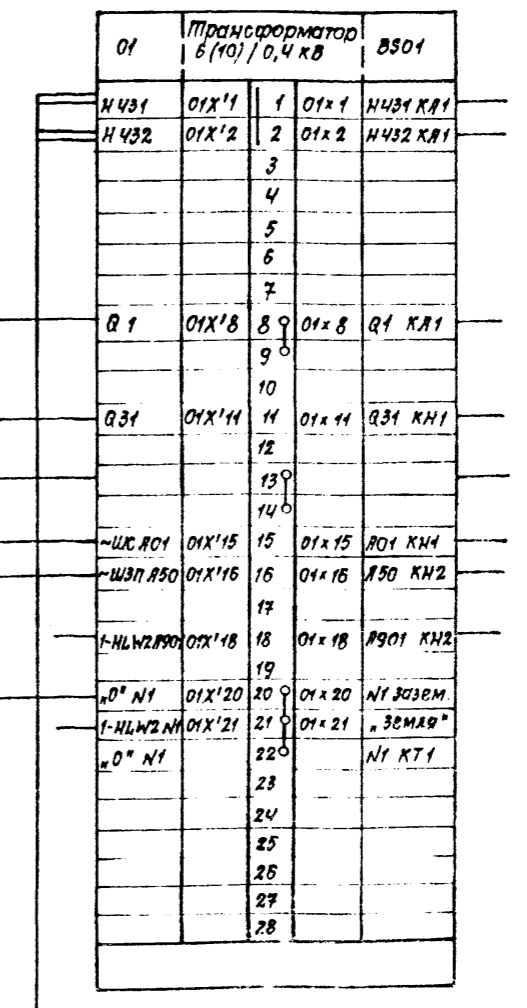 01 Трансформатор 6(10)/0,4 кВ BS01
Н431 01X'1 1 01x1 Н431 КА1
Н432 01X'2 2 01x2 Н432 КА1
3
4
5
6
7
Q1 01X'8 8 01x8 Q1 КА1
9
10
Q31 01X'11 11 01x11 Q31 КН1
12
13
14
~ШС А01 01X'15 15 01x15 А01 КН1
~ШЗП А50 01X'16 16 01x16 А50 КН2
17
1-HLW2 А901 01X'18 18 01x18 А901 КН2
19
„0" N1 01X'20 20 01x20 N1 зазем.
1-HLW2 N1 01X'21 21 01x21 „Земля"
„0" N1 22 N1 КТ1
23
24
25
26
27
28